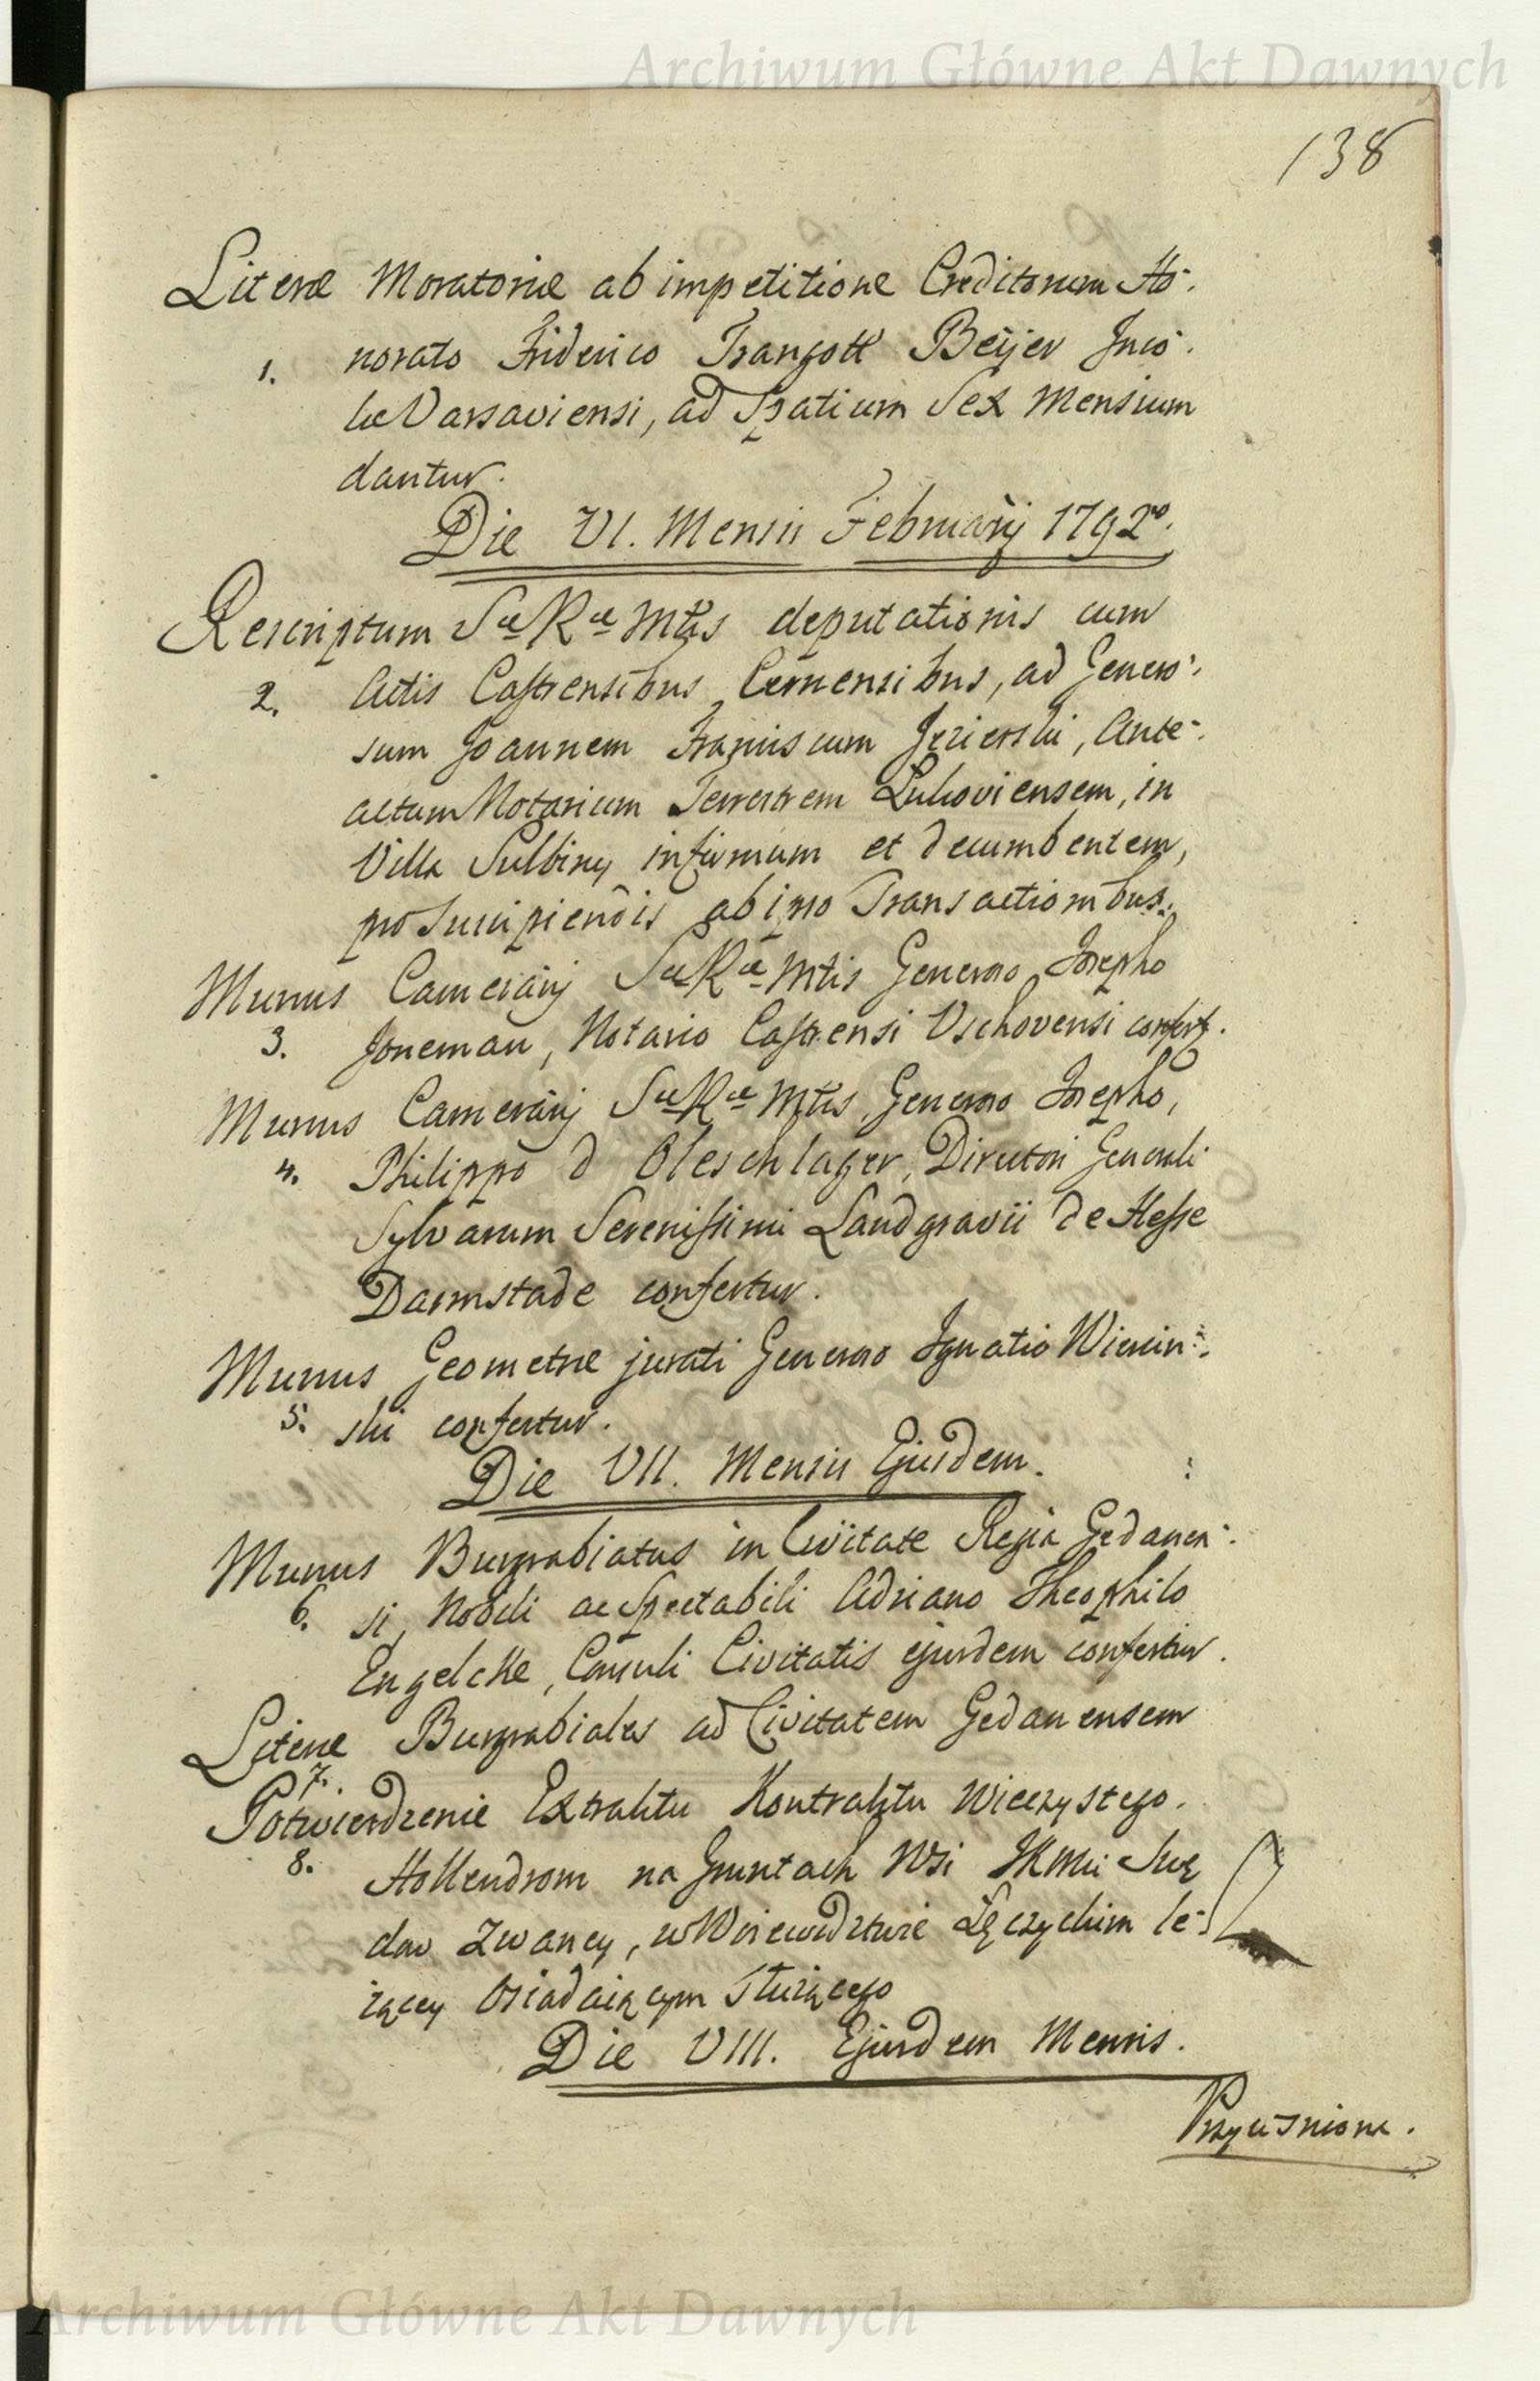 Archiwum Główne Akt Dawnych
138
Literæ Moratoriæ ab impetitione Creditorum Ho-
1. norato Friderico Traugott Beÿer Inco-
læ Varsaviensi, ad Spatium Sex Mensium
dantur.
Die VI. Mensis Februarij 1792º.
Rescriptum Sæ Ræ Mtis deputationis cum
2. Actis Castrensibus Cernensibus, ad Genero-
sum Joannem Franciscum Jezierski, Ante-
actum Notarium Terrestrem Lukoviensem, in
Villa Sulbiny infirmum et decumbentem,
pro Suscipiendis ab ipso Transactionibus.
Munus Camerarij Sæ Ræ Mtis Generoso Josepho
3. Joneman, Notario Castrensi Vschovensi confert.
Munus Camerarij Sæ Ræ Mtis, Generoso Josepho,
4. Philippo d Oleschlager, Directori Generali
Sylvarum Serenissimi Landgravii de Hesse
Darmstade confertur.
Munus Geometræ jurati Generoso Ignatio Wiercin-
5. ski confertur.
Die VII. Mensis Ejusdem.
Munus Burgrabiatus in Civitate Regia Gedanen-
6. si, Nobili ac Spectabili Adriano Theophilo
Engelcke, Consuli Civitatis ejusdem confertur.
Literæ Burgrabiales ad Civitatem Gedanensem
7.
Potwierdzenie Extraktu Kontraktu Wieczystego.
8. Hollendrom na Gruntach Wsi JKMci Swę
dow Zwaney, w Woiewodztwie Łęczyckim le-
żącey Osiadaiącym Służącego
Die VIII. Ejusdem Mensis.
Archiwum Główne Akt Dawnych